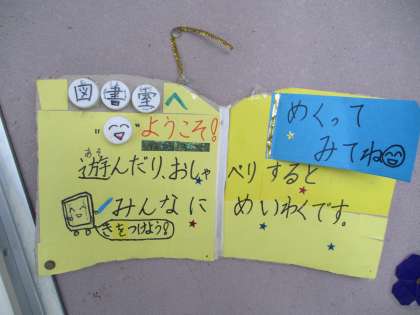 図書室へ
ようこそ!
めくって
みてね
遊んだり、おしゃべりすると
あそ
みんなにめいわくです。
きをつけよう!